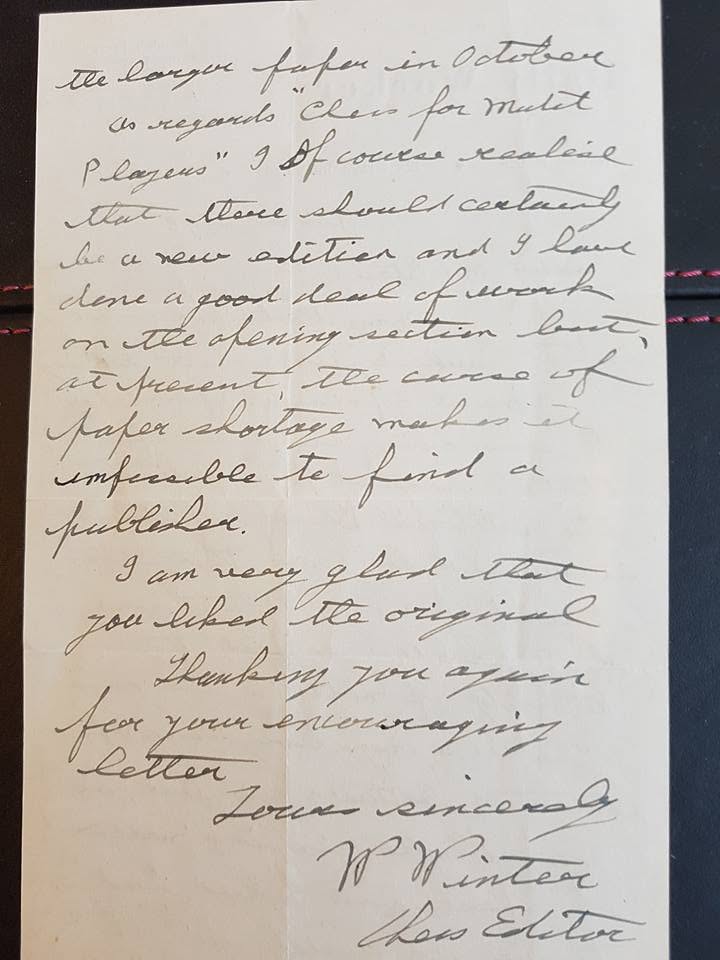 the larger paper in October
As regards "Chess for Match
Players" I Of course realise
that there should certainly
be a new edition and I have
done a good deal of work
on the opening section but,
at present, the curse of
paper shortage makes it
impossible to find a
publisher.
I am very glad that
you liked the original
Thanking you again
for your encouraging
letter
Yours sincerely
W Winter
Chess Editor